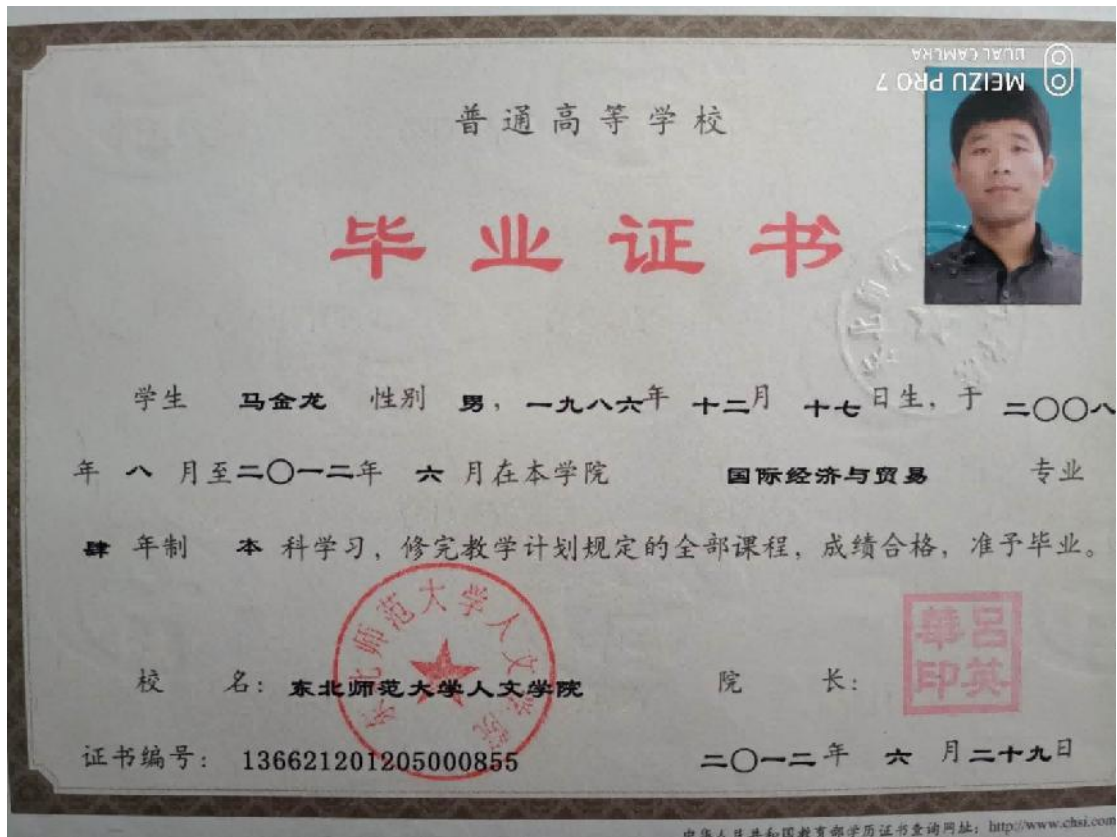 DUAL CAMERA
MEIZU PRO 7
普通高等学校
毕业证书
学生 马金龙 性别 男，一九八六年 十二月 十七日生，于 二〇〇八
年 八 月至二〇一二年 六 月在本学院 国际经济与贸易 专业
肆 年制 本 科学习，修完教学计划规定的全部课程，成绩合格，准予毕业。
东北师范大学人文学院
華呂
印英
校 名：东北师范大学人文学院 院 长：
证书编号：136621201205000855 二〇一二年 六 月二十九日
中华人民共和国教育部学历证书查询网址：http://www.chsi.com